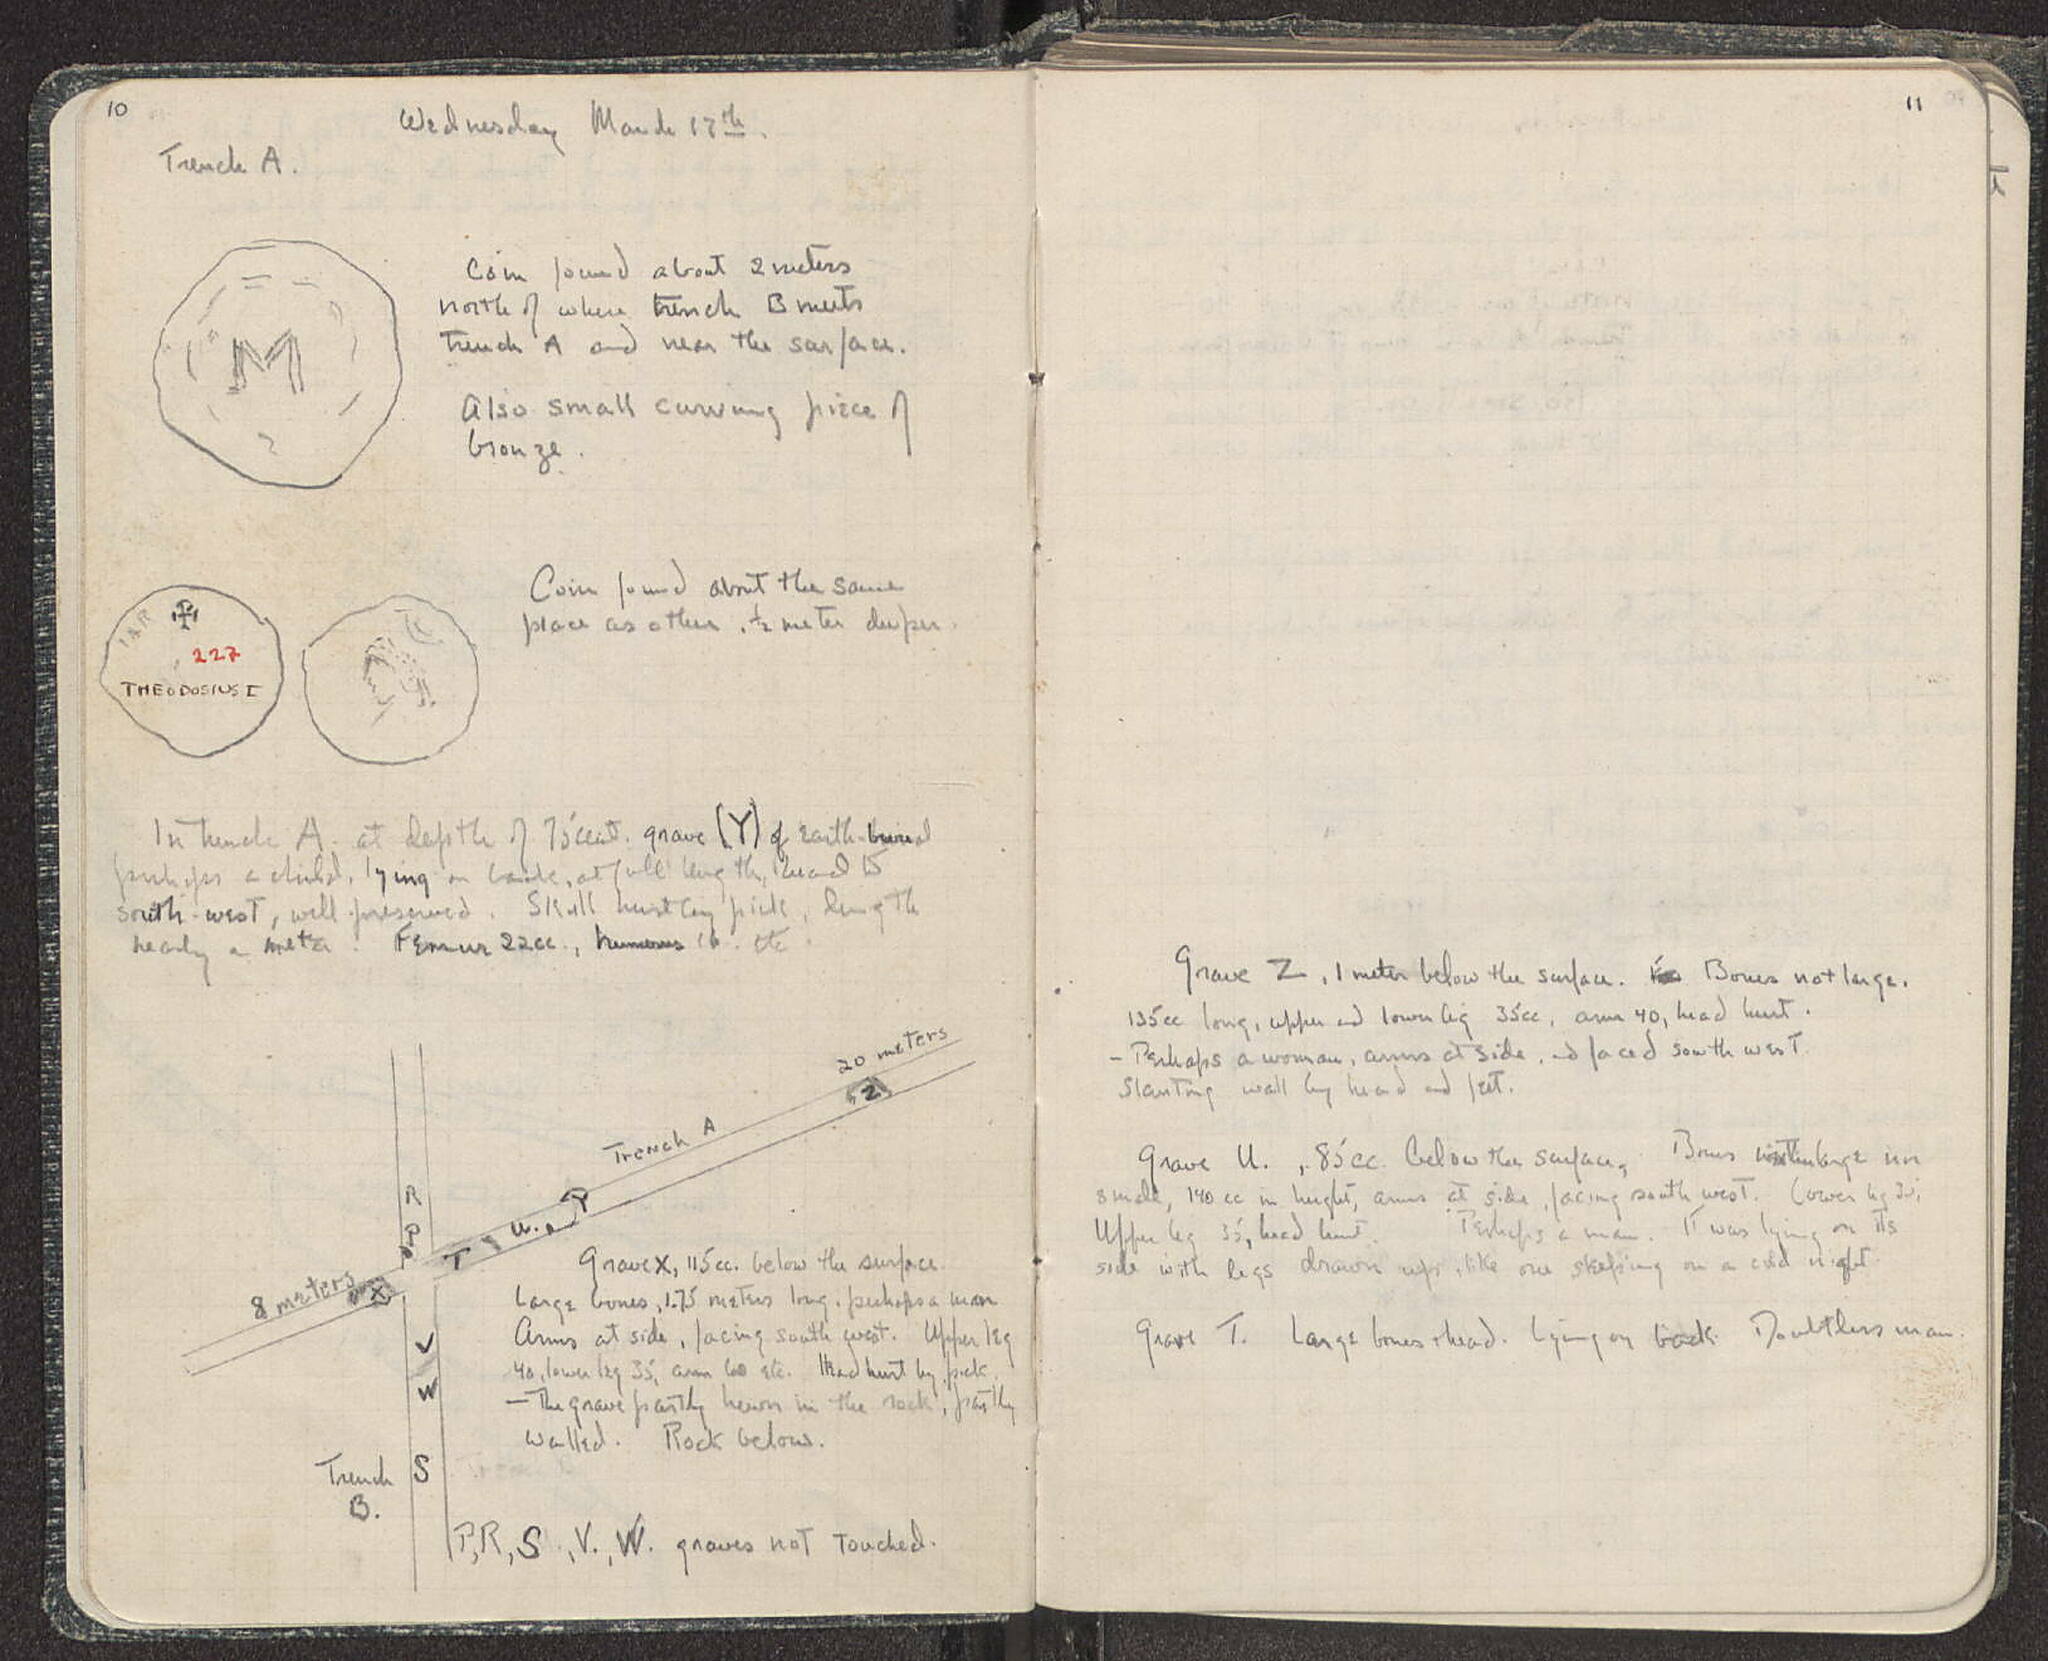 10
Wednesday March 17th.
Trench A.
M
Coin found about 2 meters
north of where trench B meets
trench A and near the surface.
Also small curving piece of
bronze.
IAR
227
THEODOSIUS I
Coin found about the same
place as other, ½ meter deeper.
In trench A. at depth of 75 cent. grave (Y) of earth-burial
perhaps a child, lying on back, at full length, head to
south-west, well preserved. Skull hurt by pick, length
nearly a meter. Femur 22cc., humerus 16. etc.
20 meters
Z
Trench A
R
P
P
T
U.
Y
8 meters
X
Grave X, 115cc. below the surface.
Large bones, 1.75 meters long. perhaps a man
Arms at side, facing south west. Upper leg
40, lower leg 35, arm 60 etc. Head hurt by pick.
- The grave partly hewn in the rock, partly
walled. Rock below.
V
W
Trench
B.
S
P, R, S., V., W. graves not touched.
11
Grave Z, 1 meter below the surface. Bones not large.
135cc long, upper and lower leg 35cc, arm 40, head hurt.
- Perhaps a woman, arms at side, and faced south west.
Slanting wall by head and feet.
Grave U., 85cc. below the surface, Bones large nor
small, 140 cc in height, arms at side, facing south west. Lower leg
Upper leg 35, head hurt. Perhaps a man. It was lying on its
side with legs drawn up, like one sleeping on a cold night.
Grave T. Large bones + head. Lying on back. Doubtless man.